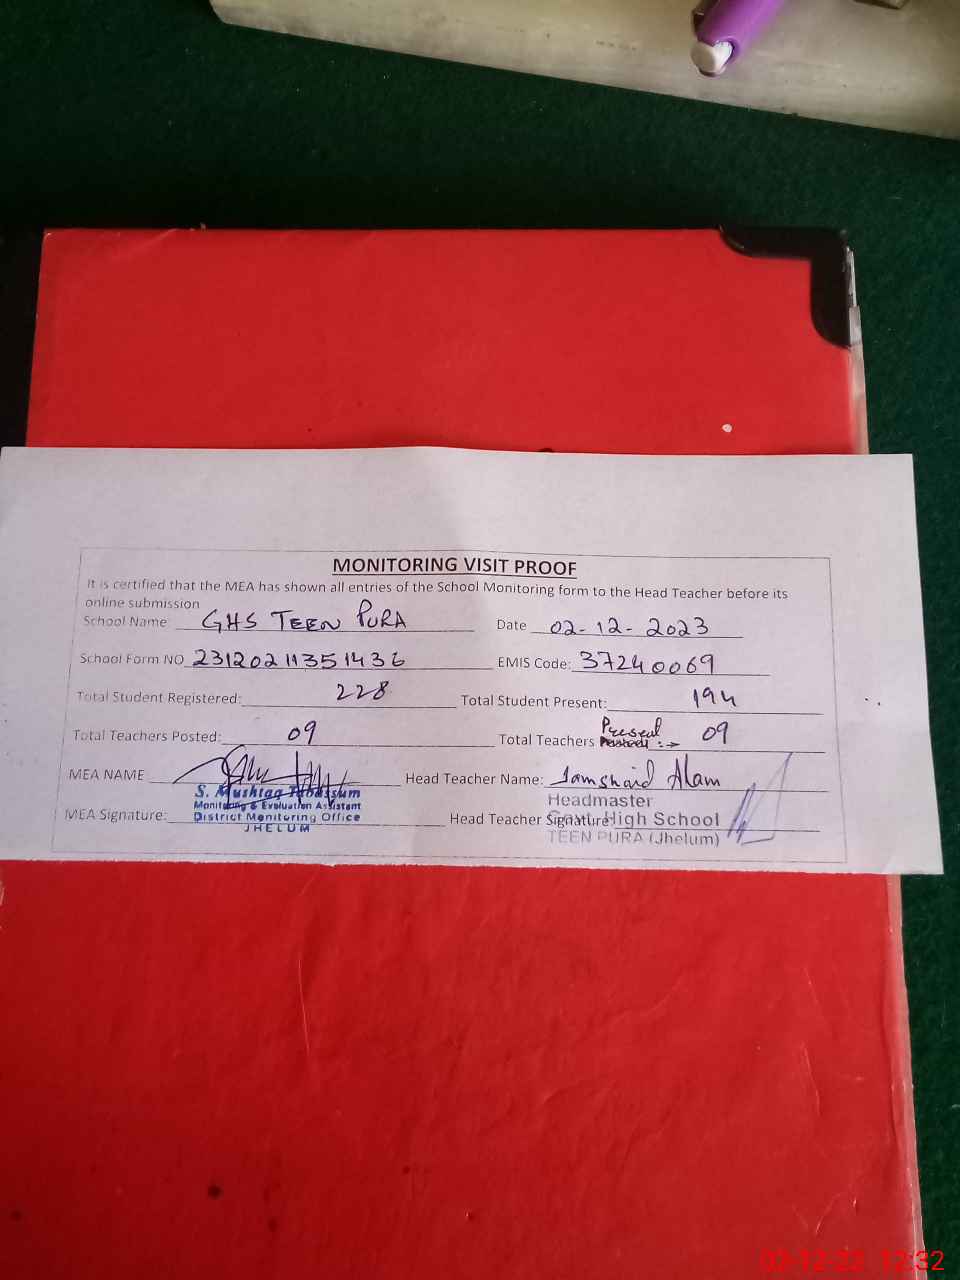 MONITORING VISIT PROOF
It is certified that the MEA has shown all entries of the School Monitoring form to the Head Teacher before its
online submission
School Name: GHS TEEN PURA Date 02-12-2023
School Form NO 23120211351436 EMIS Code: 37240069
Total Student Registered: 228 Total Student Present: 194
Total Teachers Posted: 09 Total Teachers Present :→ 09
MEA NAME Head Teacher Name: Jamshaid Alam
S. Mushtaq Tabassum
Monitoring & Evaluation Assistant
District Monitoring Office
JHELUM
MEA Signature: Head Teacher Signature:
Headmaster
Govt. High School
TEEN PURA (Jhelum)
12:32